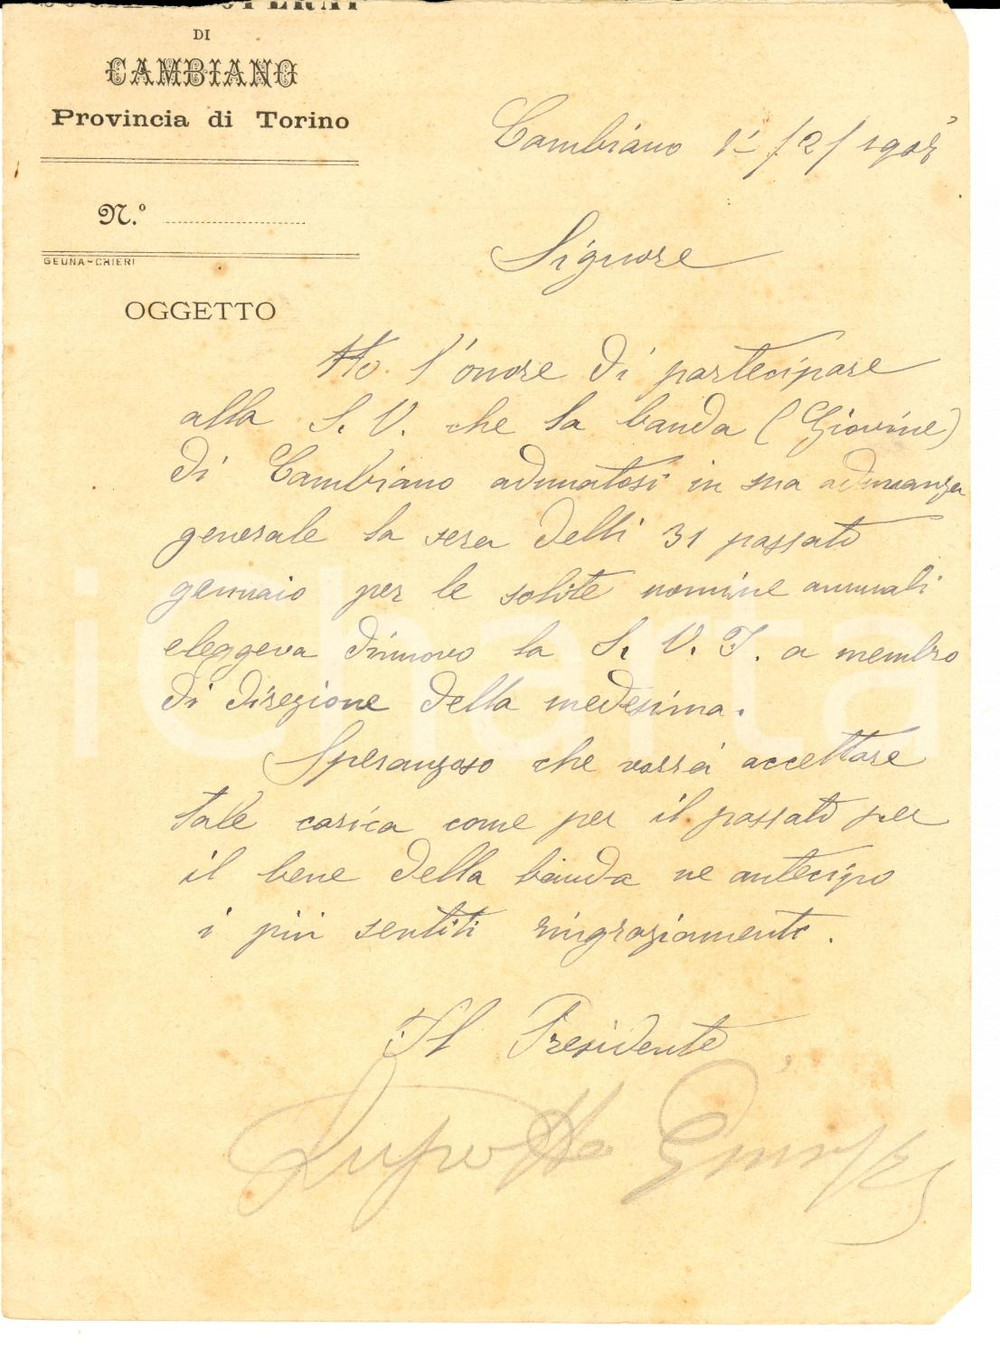 DI
CAMBIANO
Provincia di Torino
N.º
GEUNA-CHIERI
OGGETTO
Cambiano 1º/2/1905
Signore
Ho l'onore di partecipare
alla S. V. che la banda (Giovine)
di Cambiano adunatosi in sua adunanza
generale la sera delli 31 passato
gennaio per le solite nomine annuali
eleggeva dinuovo la S. V. I. a membro
di direzione della medesima.
Speranzoso che vorrà accettare
tale carica come per il passato per
il bene della banda ne antecipo
i più sentiti ringraziamenti.
Il Presidente
icharta